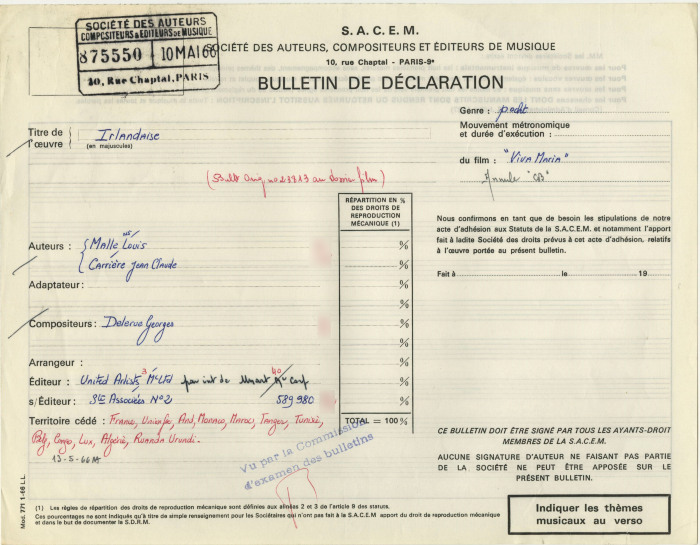 SOCIÉTÉ DES AUTEURS
COMPOSITEURS & ÉDITEURS DE MUSIQUE
875550 10 MAI 66
10, Rue Chaptal, PARIS
S.A.C.E.M.
SOCIÉTÉ DES AUTEURS, COMPOSITEURS ET ÉDITEURS DE MUSIQUE
10, rue Chaptal - PARIS-9e
BULLETIN DE DÉCLARATION
Genre :
Titre de l'œuvre Irlandaise
(en majuscules)
Mouvement métronomique
et durée d'exécution :
du film : "Viva Maria"
Annule "CB"
(Bull 23913 au dossier film)
RÉPARTITION EN %
DES DROITS DE
REPRODUCTION
MÉCANIQUE (1)
Nous confirmons en tant que de besoin les stipulations de notre
acte d'adhésion aux Statuts de la S.A.C.E.M. et notamment l'apport
fait à ladite Société des droits prévus à cet acte d'adhésion, relatifs
à l'œuvre portée au présent bulletin.
Auteurs : Malle Louis %
Carrière Jean Claude %
Fait à le 19
Adaptateur : %
%
Compositeurs : Delerue Georges %
%
Arrangeur : %
Éditeur : United Artists 3 Mc Ltd 40 %
s/Éditeur : Sté Associées No 2 589980 %
Territoire cédé : France, And, Monaco, Maroc, Tanger, Tunisie,
TOTAL = 100%
Belg, Congo, Lux, Algérie, Ruanda Urundi.
13-5-66
Vu par la Commission
d'examen des bulletins
CE BULLETIN DOIT ÊTRE SIGNÉ PAR TOUS LES AYANTS-DROIT
MEMBRES DE LA S.A.C.E.M.
AUCUNE SIGNATURE D'AUTEUR NE FAISANT PAS PARTIE
DE LA SOCIÉTÉ NE PEUT ÊTRE APPOSÉE SUR LE
PRÉSENT BULLETIN.
Indiquer les thèmes
musicaux au verso
(1) Les règles de répartition des droits de reproduction mécanique sont définies aux alinéas 2 et 3 de l'article 9 des statuts.
Ces pourcentages ne sont indiqués qu'à titre de simple renseignement pour les Sociétaires qui n'ont pas fait à la S.A.C.E.M apport du droit de reproduction mécanique
et dans le but de documenter le S.D.R.M.
Mod. 771 1-66 L.L.